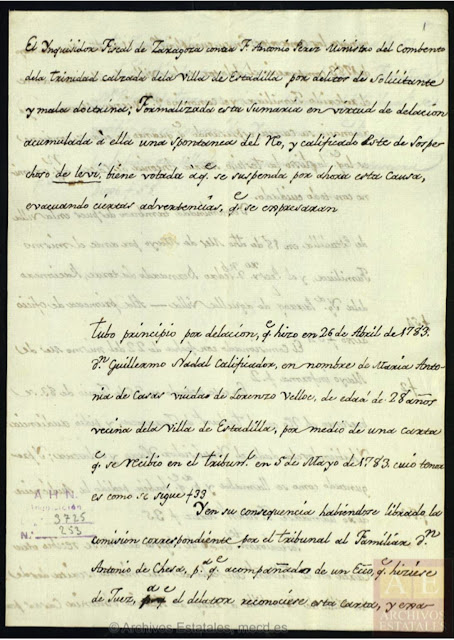 1
El Ynquisidor Fiscal de Zaragoza contra F. Antonio Perez Ministro del Combento
dela Trinidad calzada dela Villa de Estadilla por delitos de Solicitante
y mala doctrina; Formalizado esta Sumaria en virtud de delacion
acumulada à ella una Spontanea del Rèo, y calificado Este de Sospe-
choso de levi, biene votada à q.e se suspenda por ahora esta Causa,
evacuando ciertas advertencias, q.e se expresaran
tubo principio por delacion, q.e hizo en 26 de Abril de 1783.
D.n Guillermo Nadal Calificador, en nombre de Maria Anto-
nia de Casas viuda de Lorenzo Velloc, de edad de 28 años
vecina dela Villa de Estadilla, por medio de una carta
q.e se recibio en el tribun.l en 5 de Mayo de 1783. cuio tenor
es como se sigue f 33
Y en su consequencia habiendose librado la
comision correspondiente por el tribunal al Familiar D.n
Antonio de Chesa, p.a q.e acompañado de un Ecc.o, q.e hiziese
de Juez, el delator reconociese esta carta, y exa-
A H N
Inquisición
3725
N.º 253
© Archivos Estatales, mecd.es